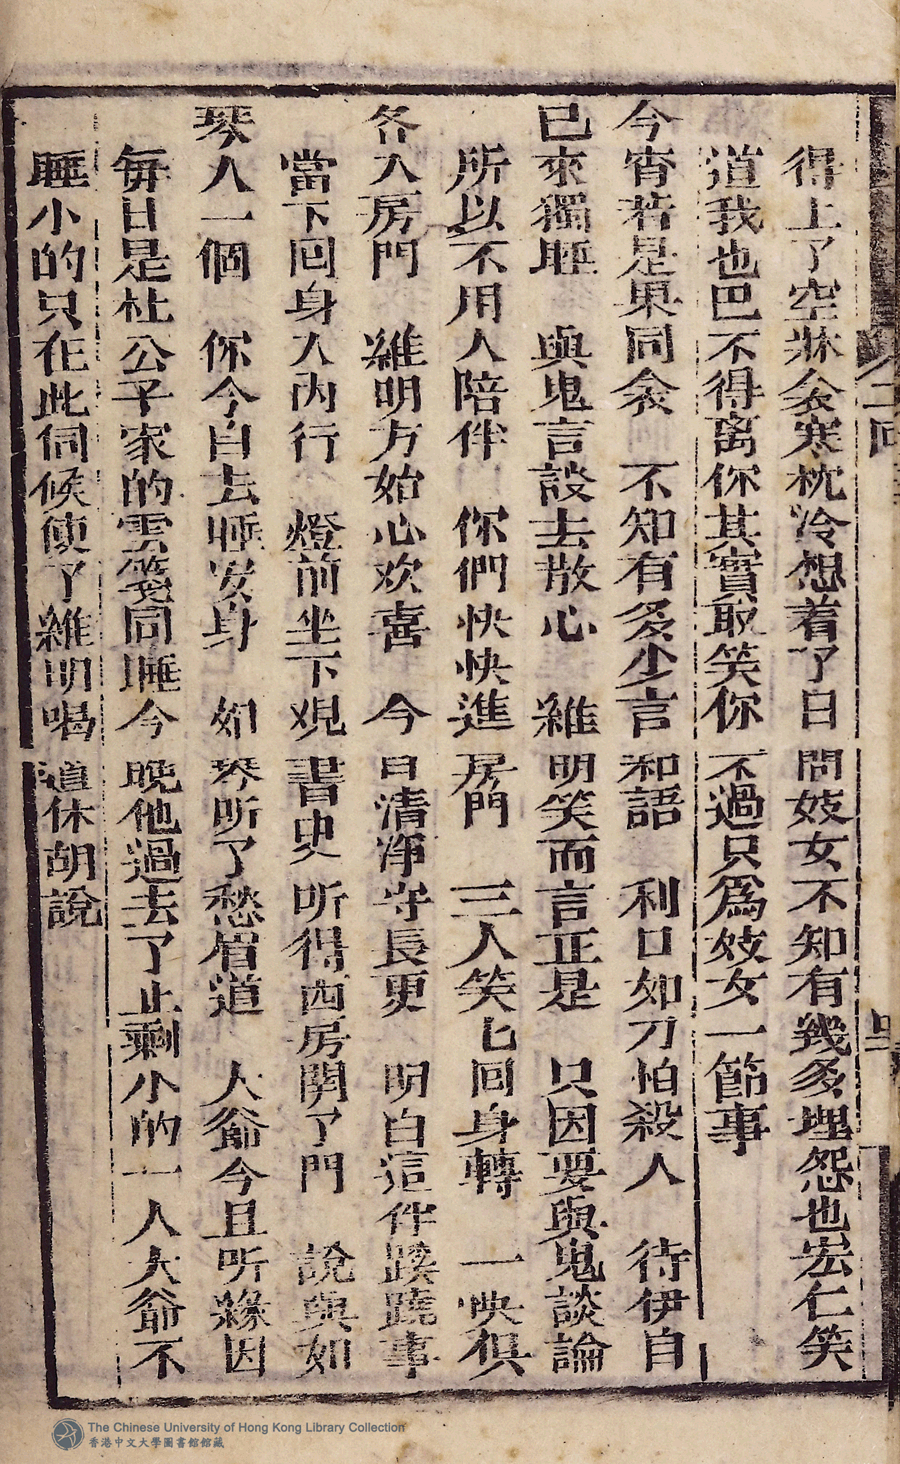 得上了空牀衾寒枕冷想着了日問妓女不知有幾多埋怨也宏仁笑
道我也巴不得离你其實取笑你不過只為妓女一節事
今宵若是果同衾　不知有多少言和語　利口如刀怕殺人　待伊自
已來獨睡　與鬼言談去散心　維明笑而言正是　只因要與鬼談論
所以不用人陪伴　你們快快進房門　三人笑匕回身轉　一快俱
各入房門　維明方始心欢喜　今日清淨守長更　明白這件蹊蹺事
當下回身入內行　燈前坐下觀書史　听得西房開了門　說與如
琴人一個　你今自去睡安身　如琴听了愁眉道　大爺今且听緣因
每日是杜公子家的雲箋同睡今晚他過去了止剩小的一人大爺不
睡小的只在此伺候便了維明喝道休胡說
二回
The Chinese University of Hong Kong Library Collection
香港中文大學圖書館館藏